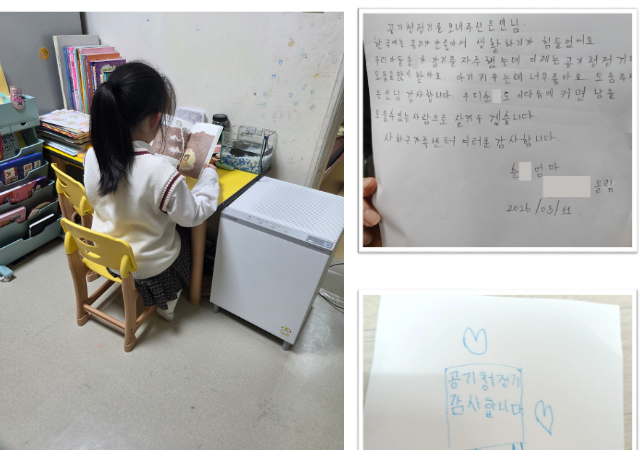 공기청정기를 보내주신 은인님.
한국에는 공기가 안좋아서 생활하기가 힘들었어요
우리아들은 가 감기를 자주했는데 이제는 공기청정기
도움을 많이 받아요. 아기키우는데 너무좋아요. 도움주
은인님 감사합니다. 우리순 도 이다음에 커면 남을
도울수있는사람으로 잘키우겠습니다.
사하구가족센터 여러분 감사합니다.
순 엄마
올림
2026/03/11
공기청정기
감사합니다